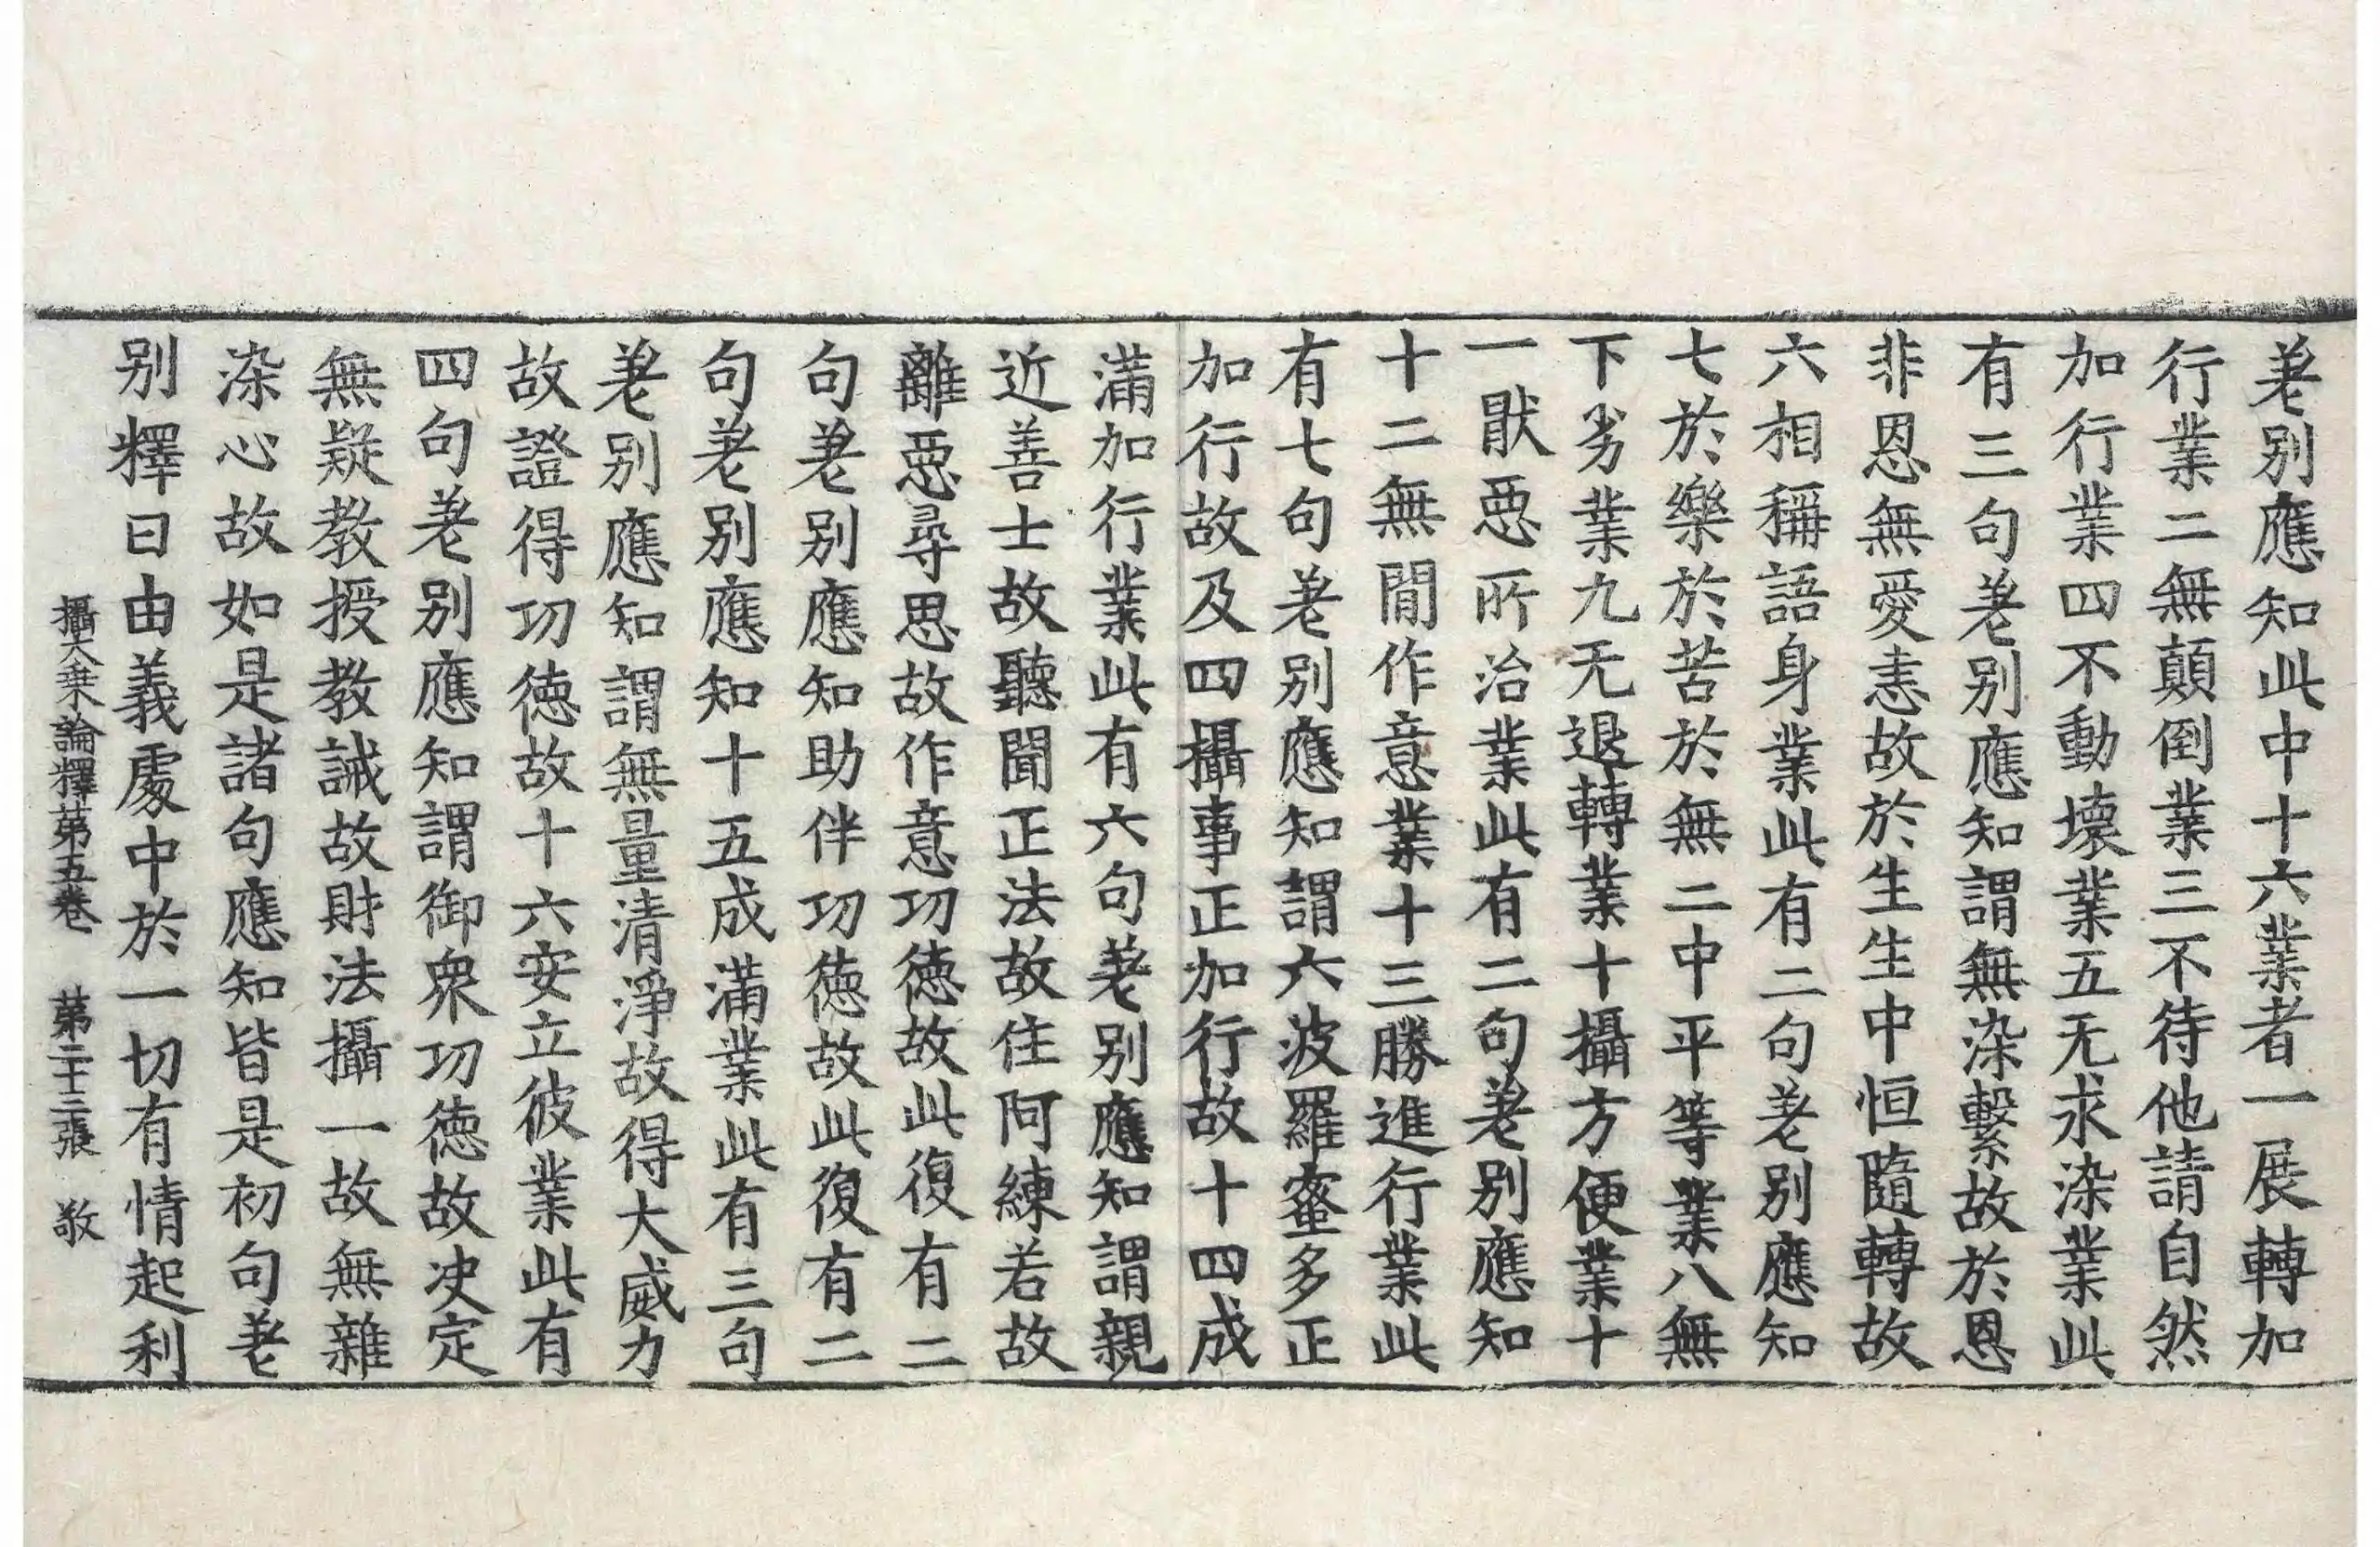 差別應知此中十六業者一展轉加
行業二無顛倒業三不待他請自然
加行業四不動壞業五无求染業此
有三句差別應知謂無染繫故於恩
非恩無愛恚故於生生中恒隨轉故
六相稱語身業此有二句差別應知
七於樂於苦於無二中平等業八無
下劣業九无退轉業十攝方便業十
一猒惡所治業此有二句差別應知
十二無間作意業十三勝進行業此
有七句差別應知謂六波羅蜜多正
加行故及四攝事正加行故十四成
滿加行業此有六句差別應知謂親
近善士故聽聞正法故住阿練若故
離惡尋思故作意功德故此復有二
句差別應知助伴功德故此復有二
句差別應知十五成滿業此有三句
差別應知謂無量清淨故得大威力
故證得功德故十六安立彼業此有
四句差別應知謂御衆功德故決定
無疑教授教誡故財法攝一故無雜
染心故如是諸句應知皆是初句差
別釋曰由義處中於一切有情起利
攝大乗論釋苐五卷 苐二十三張 敬